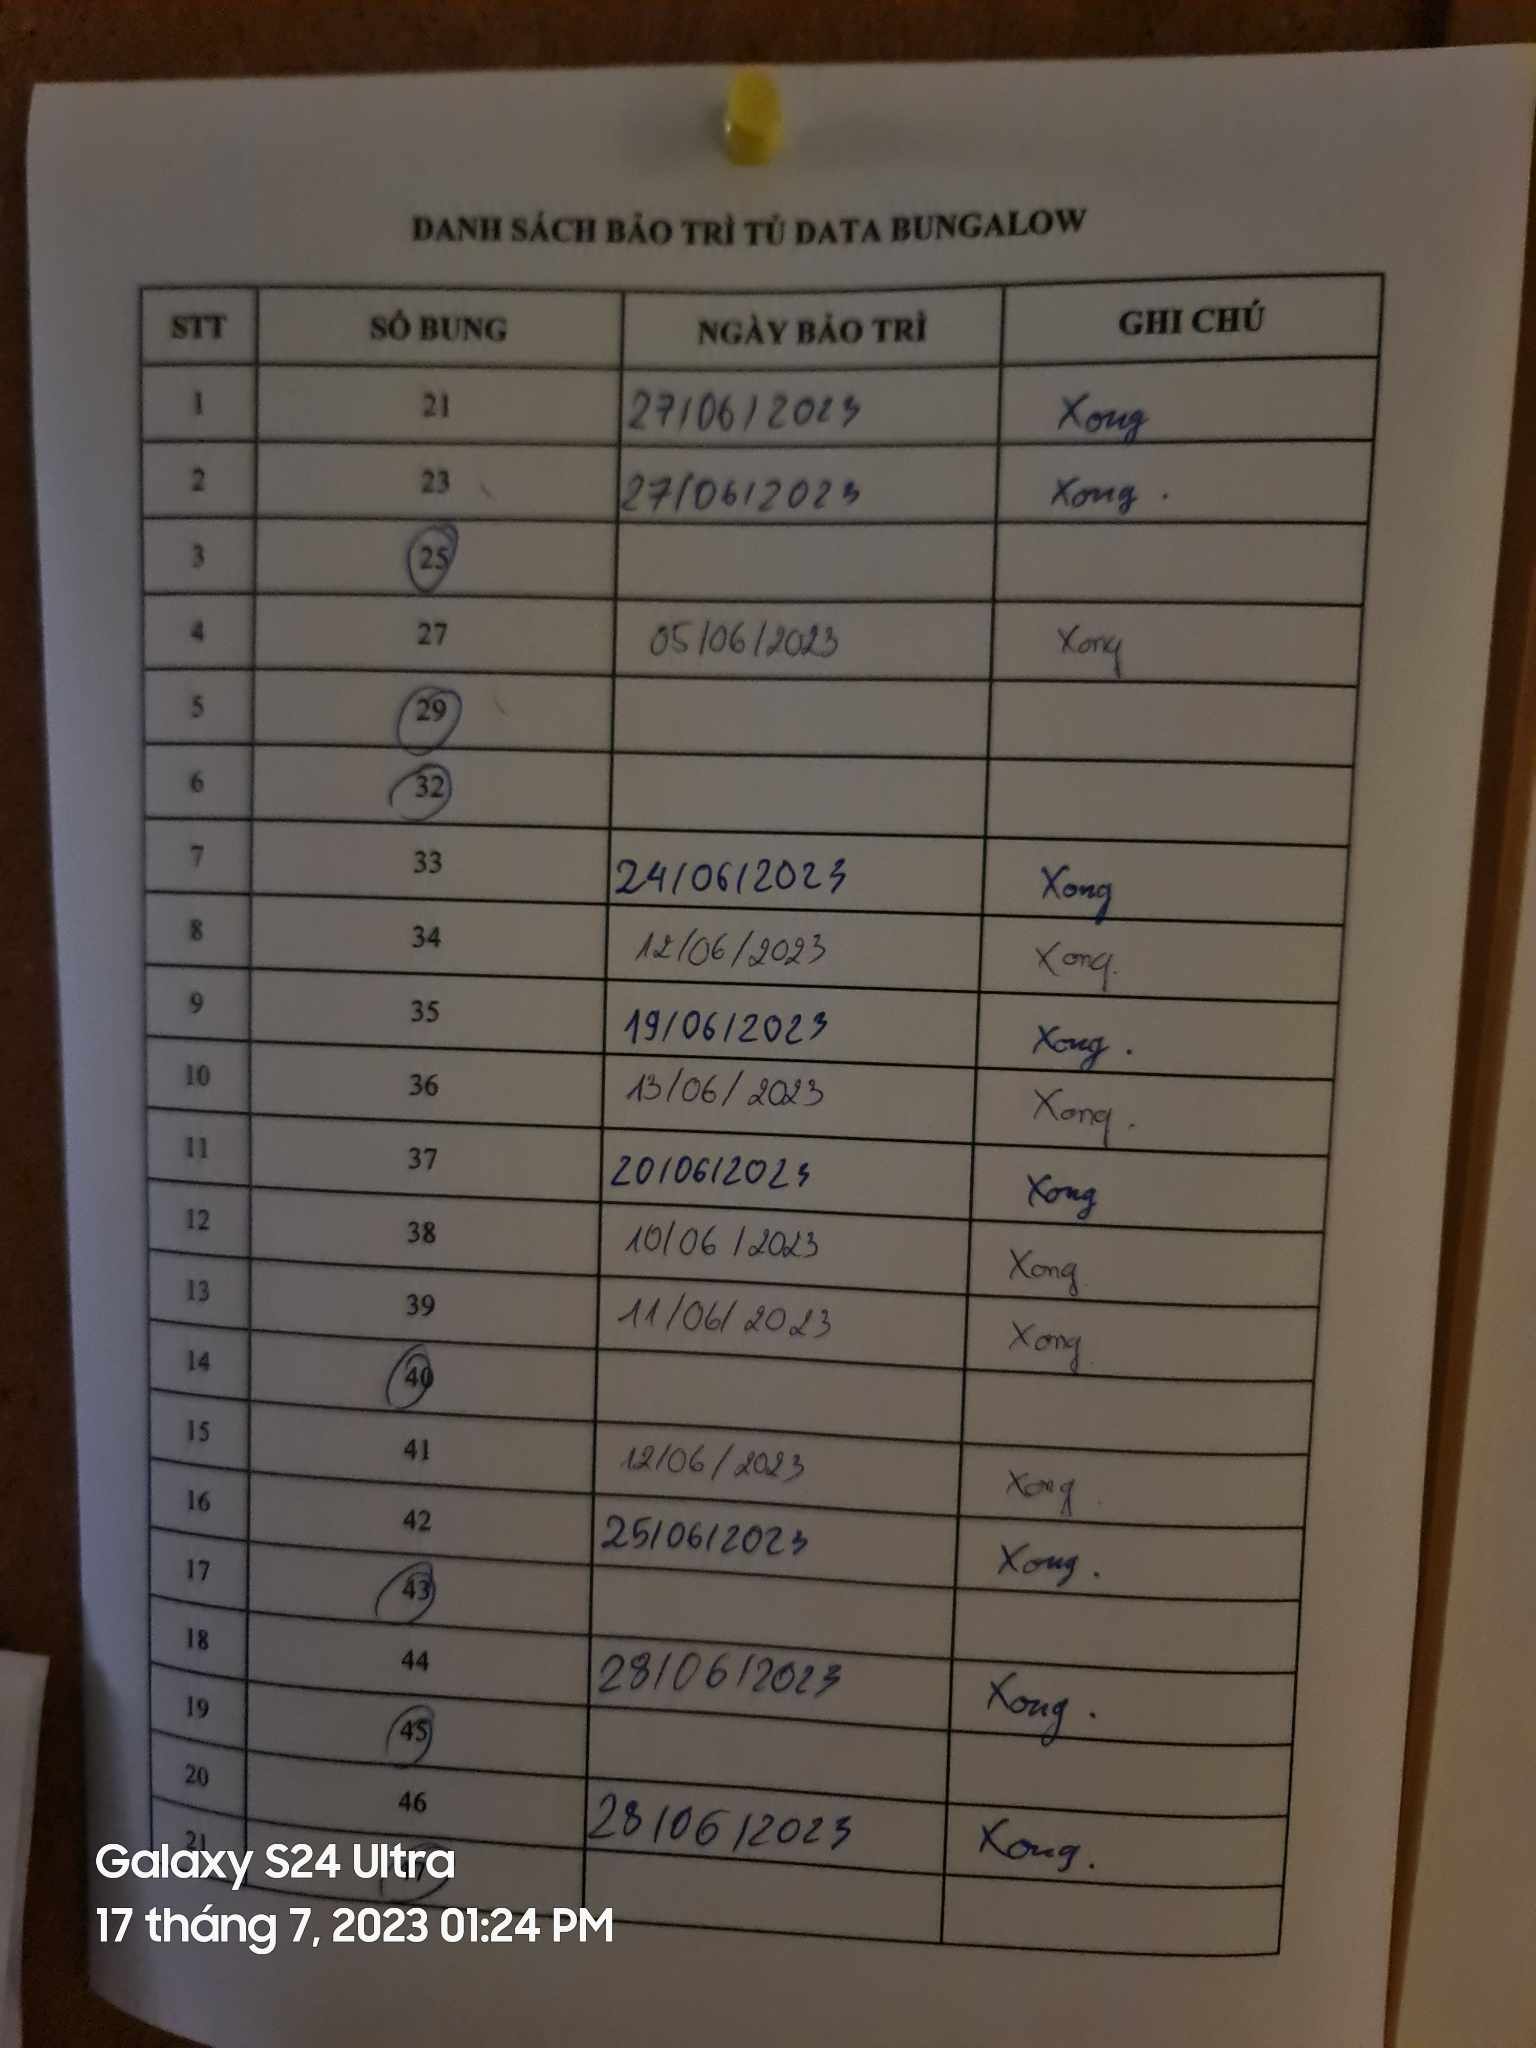 DANH SÁCH BẢO TRÌ TỦ DATA BUNGALOW
STT SỐ BUNG NGÀY BẢO TRÌ GHI CHÚ
1 21 27/06/2023 Xong
2 23 27/06/2023 Xong.
3 25
4 27 05/06/2023 Xong
5 29
6 32
7 33 24/06/2023 Xong
8 34 12/06/2023 Xong.
9 35 19/06/2023 Xong.
10 36 13/06/2023 Xong.
11 37 20/06/2023 Xong
12 38 10/06/2023 Xong.
13 39 11/06/2023 Xong.
14 40
15 41 12/06/2023 Xong.
16 42 25/06/2023 Xong.
17 43
18 44 28/06/2023 Xong.
19 45
20 46 28/06/2023 Xong.
21
Galaxy S24 Ultra
17 tháng 7, 2023 01:24 PM